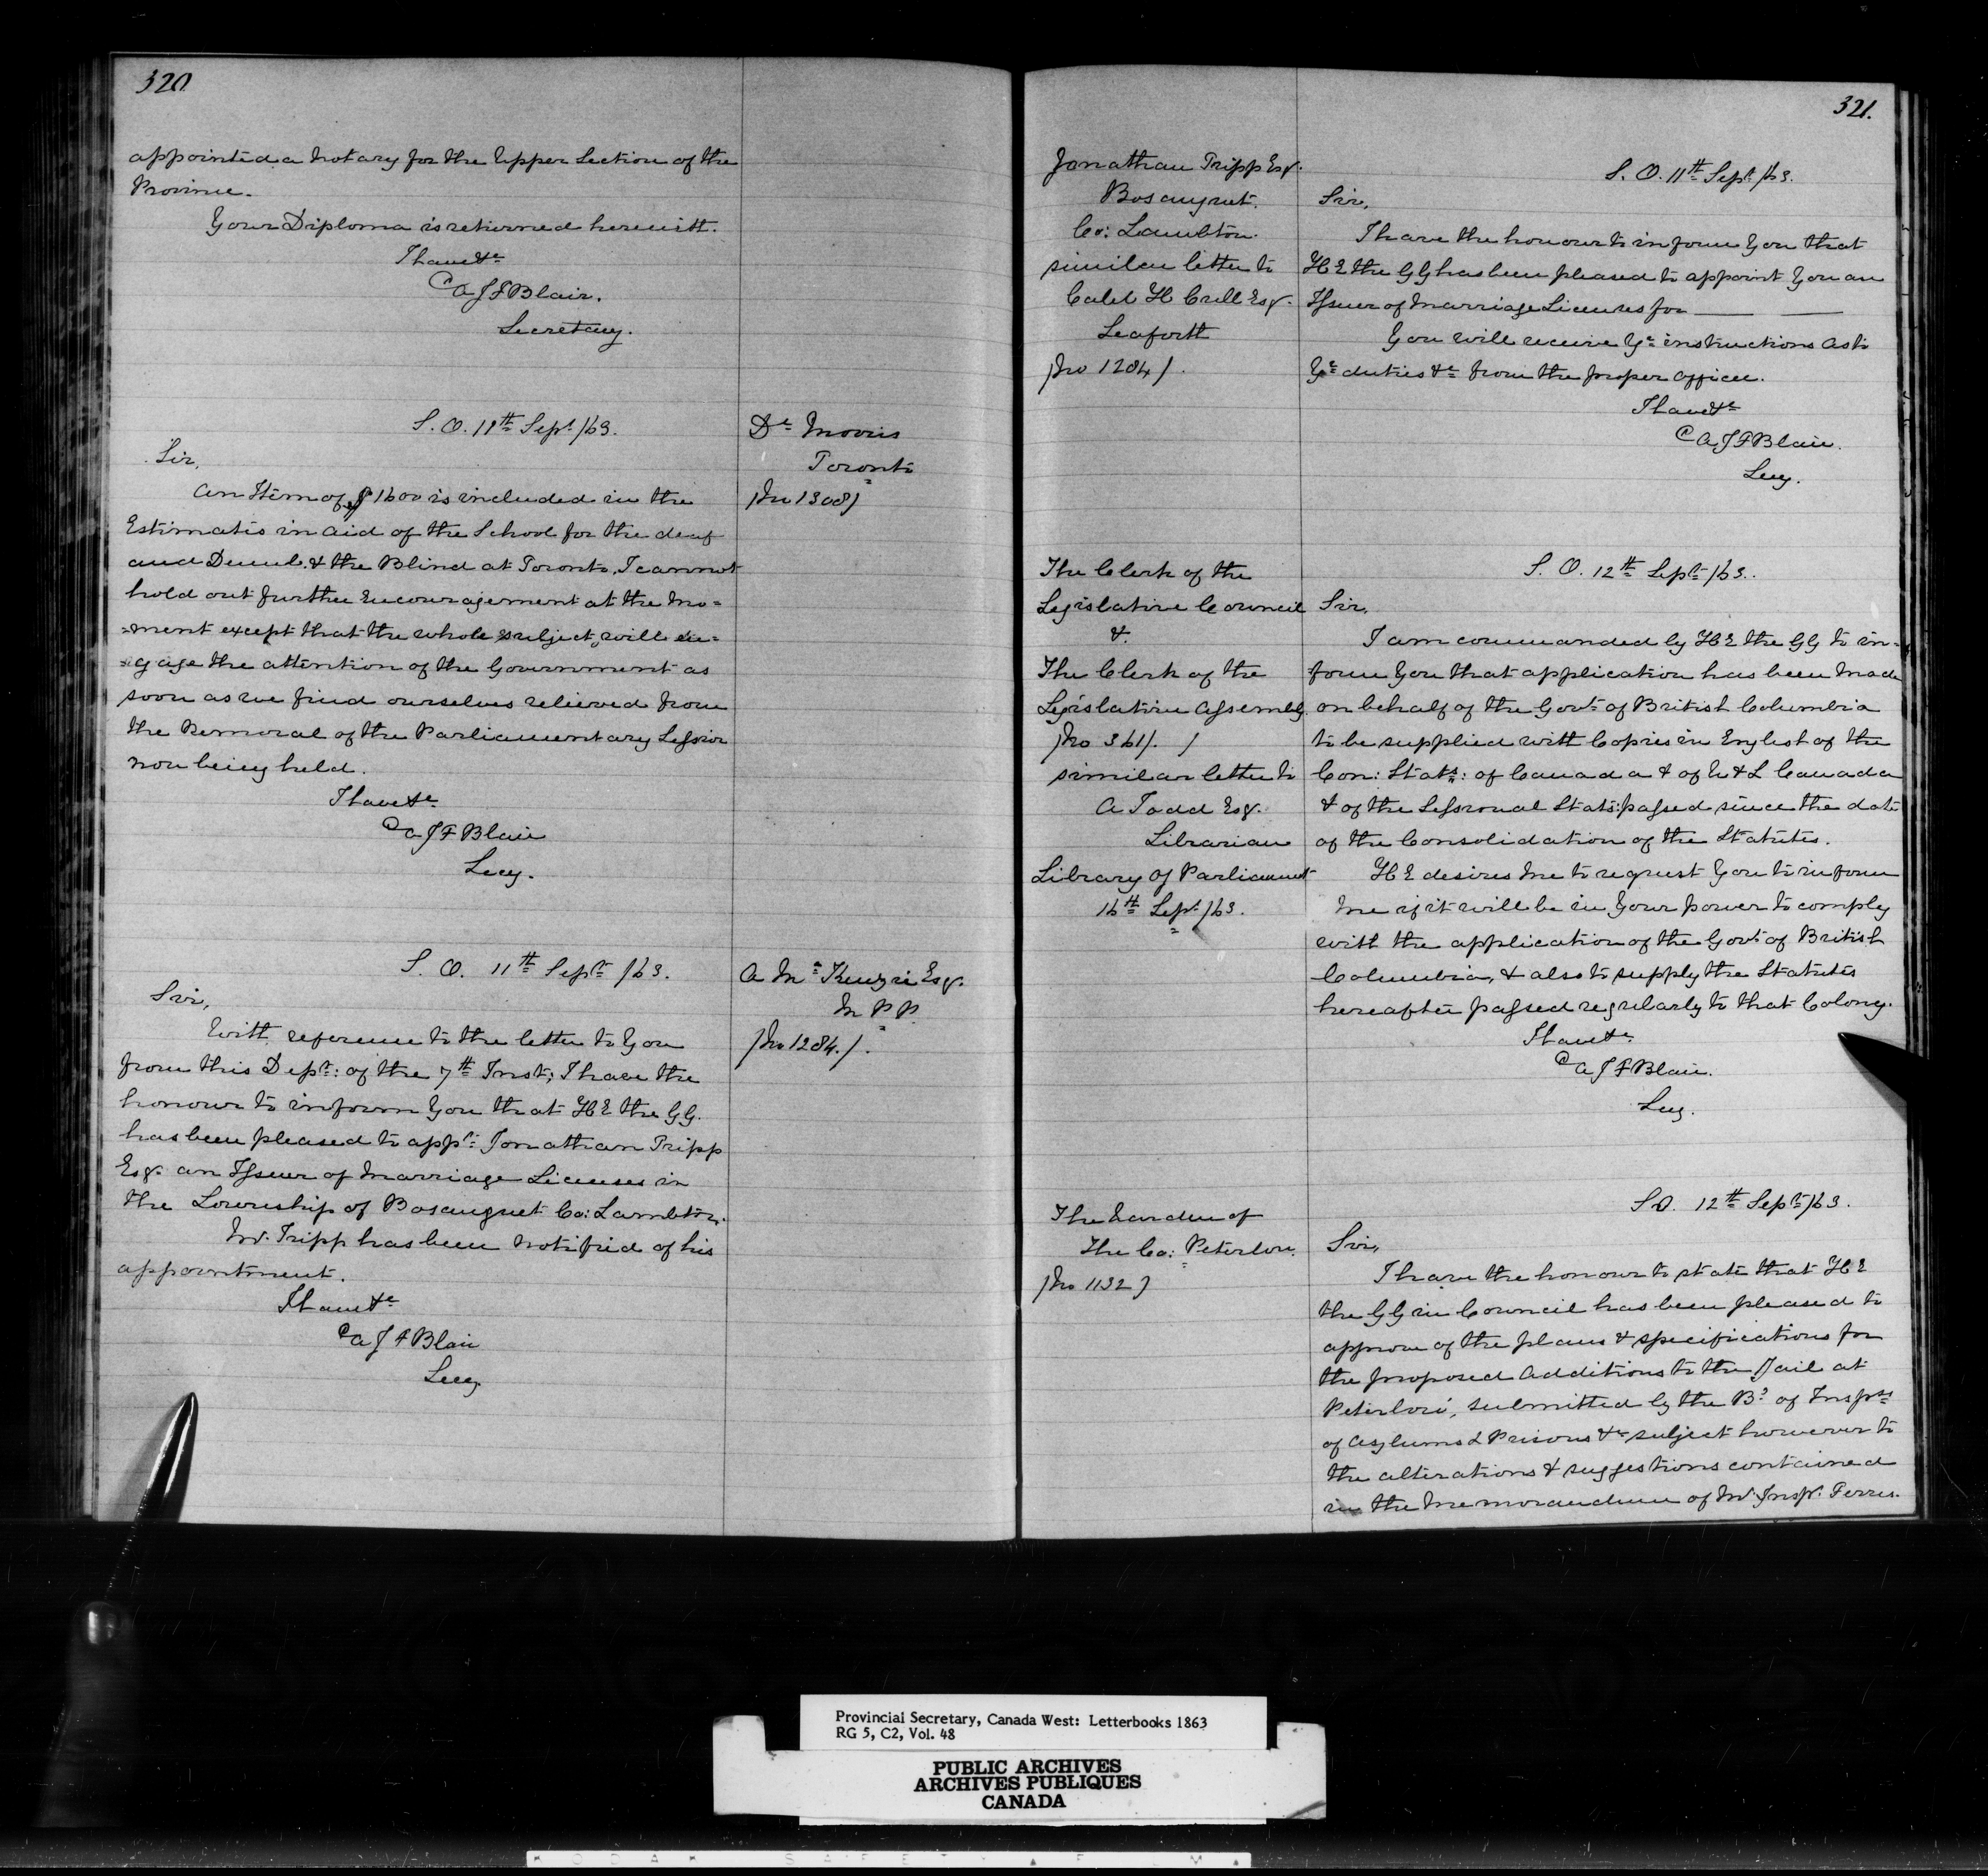 320
appointed a Notary for the Upper Section of the
Province.
Your Diploma is returned herewith.
I have &c
A J F Blair.
Secretary.
S. O. 11th Sept /63.
Dr Morris
Toronto
/No 1308/
Sir,
An Item of $1600 is included in the
Estimates in aid of the School for the deaf
and Dumb & the Blind at Toronto. I cannot
hold out further encouragement at the mo=
=ment except that the whole subject will en=
=gage the attention of the Government as
soon as we find ourselves relieved from
the Removal of the Parliamentary Session
now being held.
I have &c
A J F Blair
Secy.
S. O. 11th Sept /63.
A McKenzie Esq.
M P P.
/No 1284./.
Sir,
With reference to the letter to You
from this Dept: of the 7th Inst; I have the
honour to inform You that H E the G G.
has been pleased to appt: Jonathan Tripp
Esq. an Issuer of Marriage Licenses in
the Township of Bosanquet Co: Lambton.
Mr. Tripp has been notified of his
appointment.
I have &c
A J F Blair
Secy
321.
Jonathan Tripp Esq.
Bosanquet.
Co: Lambton.
similar letter to
Caleb H Crell Esq.
Seaforth
/No 1284/.
S. O. 11th Sept /63.
Sir,
I have the honour to inform You that
H E the G G has been pleased to appoint You an
Issuer of Marriage Licenses for
You will receive Yr instructions as to
Yr duties &c from the proper officer.
I have &c
A J F Blair.
Secy.
The Clerk of the
Legislative Council
&.
The Clerk of the
Legislative Assembly.
/No 361/. /
similar letter to
A Todd Esq.
Librarian
Library of Parliament
16th Sept /63.
S. O. 12th Sept /63.
Sir,
I am commanded by H E the G G to in=
form You that application has been made
on behalf of the Govt of British Columbia
to be supplied with Copies in English of the
Con: Stats: of Canada & of U & L Canada
& of the Sessional Stats: passed since the date
of the Consolidation of the Statutes.
H E desires me to request You to inform
me if it will be in Your power to comply
with the application of the Govt of British
Columbia, & also to supply the Statutes
hereafter passed regularly to that Colony.
I have &c
A J F Blair.
Secy.
The Warden of
The Co: Peterboro.
/No 1132/
S O. 12th Sept /63.
Sir,
I have the honour to state that H E
the G G in Council has been pleased to
approve of the plans & specifications for
the proposed additions to the Jail at
Peterboro', submitted by the Bd of Inspts
of Asylums & Prisons &c subject however to
the alterations & suggestions contained
in the Memorandum of Mr. Inspr. Ferres.
Provincial Secretary, Canada West: Letterbooks 1863
RG 5, C2, Vol. 48
PUBLIC ARCHIVES
ARCHIVES PUBLIQUES
CANADA
KODAK SAFETY FILM